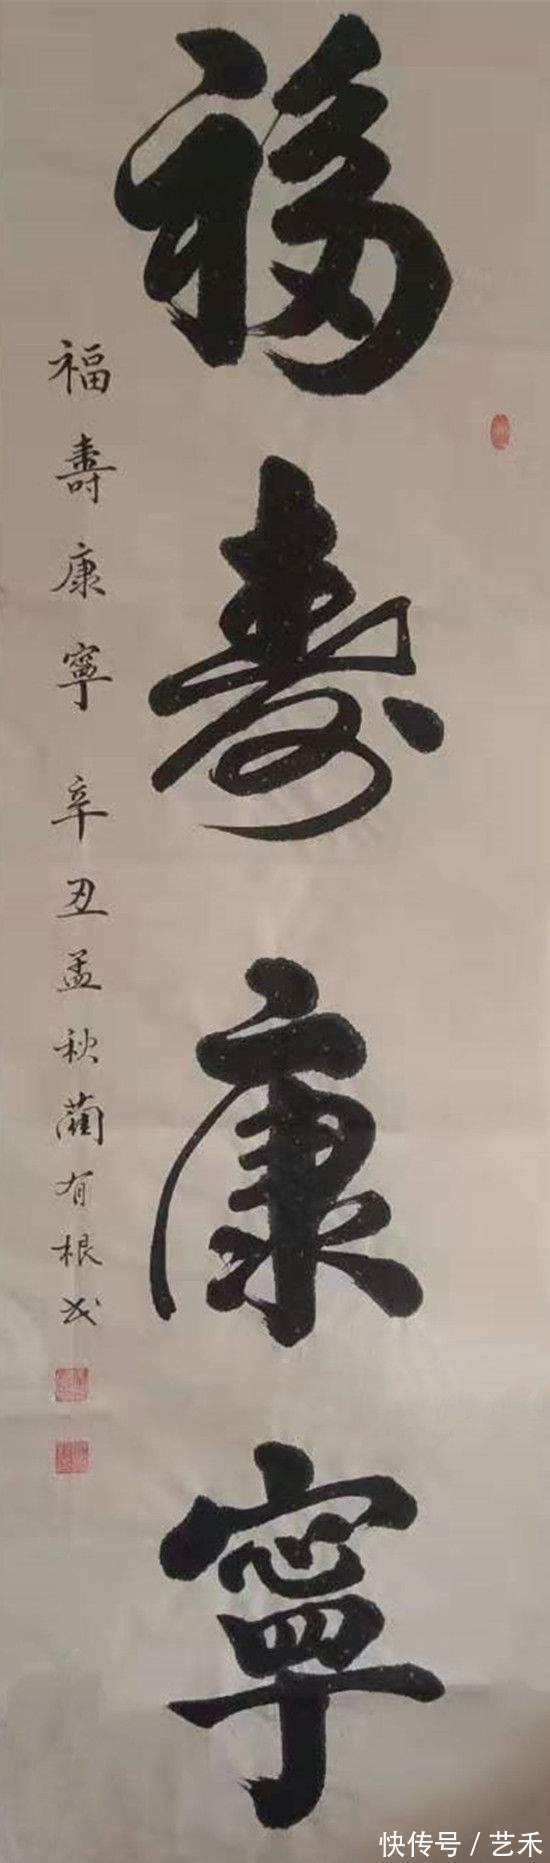 福壽康寧
福壽康寧 辛丑孟秋藺有根书
快传号 / 艺禾